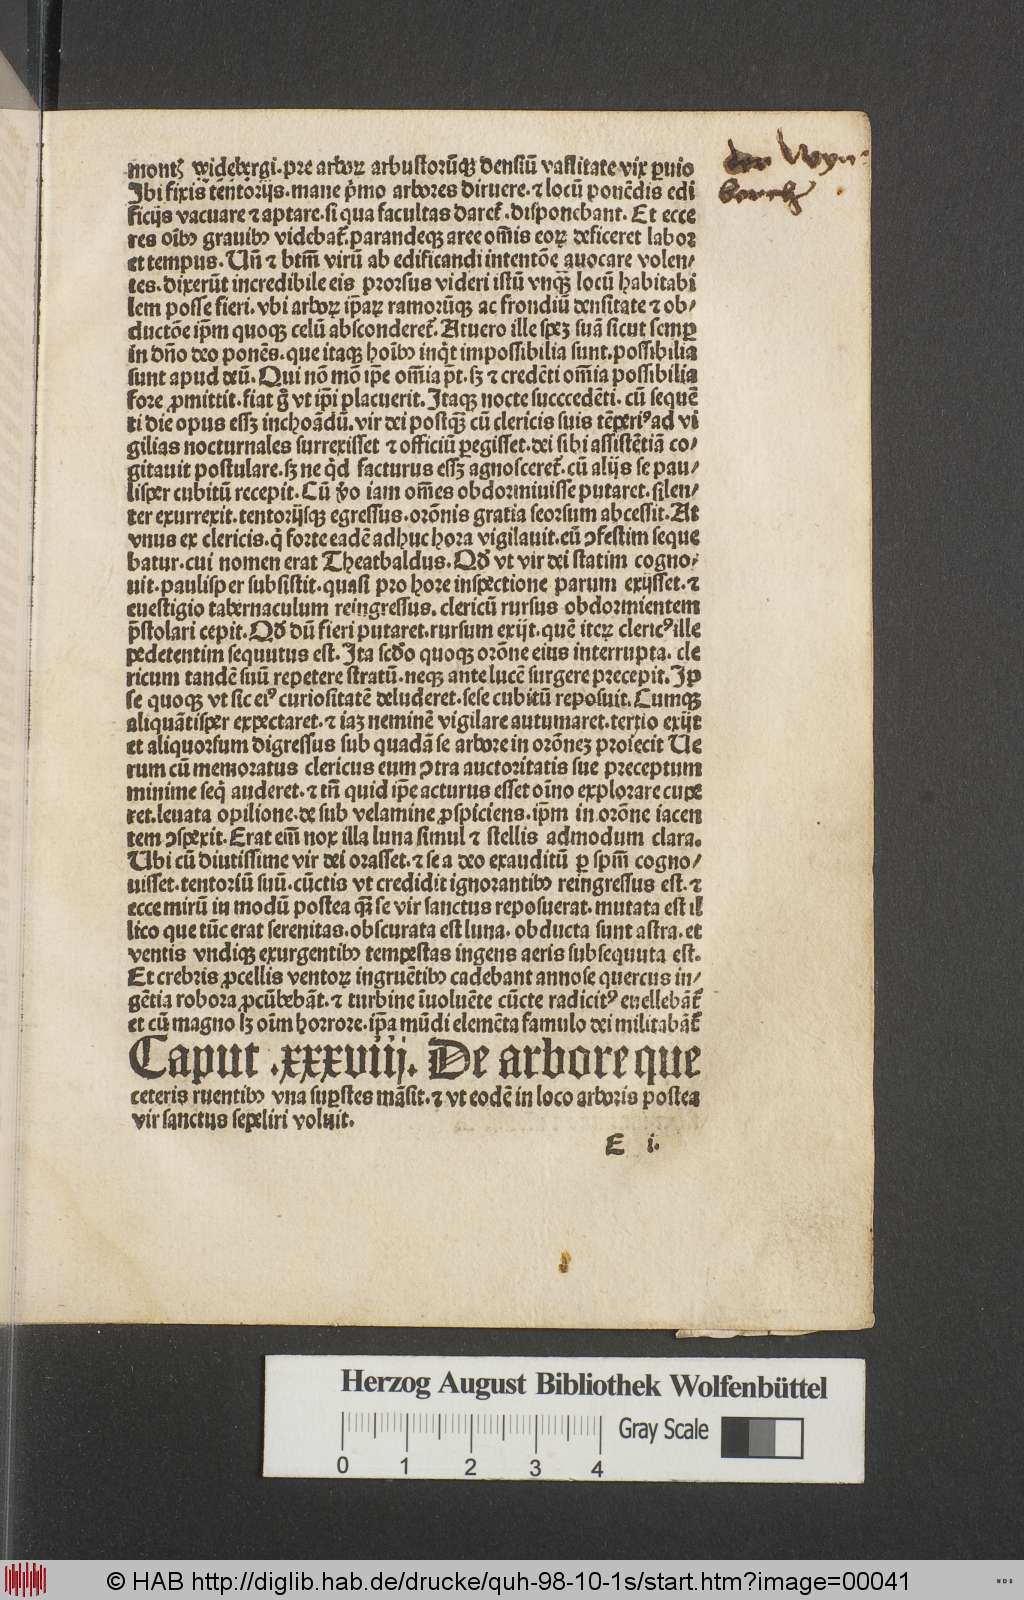 montꝭ widebergi. pre arboꝝ arbustorūqꝫ densiū vastitate vix ꝑuio
Ibi fixis tentorijs. mane p̄mo arbores diruere. ⁊ locū ponēdis edi
ficijs vacuare ⁊ aptare. si qua facultas daret᷑. disponebant. Et ecce
res oībꝰ grauibꝰ videbat᷑. parandeqꝫ aree om̄is eoꝝ deficeret labor
et tempus. Un̄ ⁊ btm̄ virū ab edificandi intentōe auocare volen⸗
tes. dixerūt incredibile eis prorsus videri istū vnqꝫ̄ locū habitabi
lem posse fieri. vbi arboꝝ ip̄aꝝ ramorūqꝫ ac frondiū densitate ⁊ ob⸗
ductōe ip̄m quoqꝫ celū absconderet᷑. Atuero ille speꝫ suā sicut semꝑ
in dn̄o deo ponēs. que itaqꝫ hoībꝰ inq̄t impossibilia sunt. possibilia
sunt apud deū. Qui nō mō ip̄e om̄ia p̄t. sꝫ ⁊ credēti om̄ia possibilia
fore ꝓmittit. fiat g̊ vt ip̄i placuerit. Itaqꝫ nocte succcedēti. cū sequē
ti die opus essꝫ inchoādū. vir dei postqꝫ̄ cū clericis suis tēperiꝰ ad vi
gilias nocturnales surrexisset ⁊ officiū ꝑegisset. dei sibi assistētiā co⸗
gitauit postulare. sꝫ ne q̇d facturus essꝫ agnosceret᷑. cū alijs se pau⸗
lisper cubitū recepit. Cū v̊o iam om̄es obdormiuisse putaret. silen⸗
ter exurrexit. tentorijsqꝫ egressus. orōnis gratia seorsum abcessit. At
vnus ex clericis. q̇ forte eadē adhuc hora vigilauit. eū ꝯfestim seque
batur. cui nomen erat Theatbaldus. Qd̄ vt vir dei statim cogno⸗
uit. paulisper subsistit. quasi pro hore inspectione parum exijsset. ⁊
euestigio tabernaculum reingressus. clericū rursus obdormientem
p̄stolari cepit. Qd̄ dū fieri putaret. rursum exijt. quē iteꝝ clericꝰ ille
pedetentim sequutus est. Ita scd̄o quoqꝫ orōne eius interrupta. cle
ricum tandē suū repetere stratū. neqꝫ ante lucē surgere precepit. Ip̄
se quoqꝫ vt sic eiꝰ curiositatē deluderet. sese cubitū reposuit. Cumqꝫ
aliquātisper expectaret. ⁊ iaꝫ neminē vigilare autumaret. tertio exijt
et aliquorsum digressus sub quadā se arbore in orōneꝫ proiecit Ue
rum cū memoratus clericus eum ꝯtra auctoritatis sue preceptum
minime seq̇ auderet. ⁊ tn̄ quid ip̄e acturus esset oīno explorare cupe
ret. leuata opilione. de sub velamine ꝓspiciens. ip̄m in orōne iacen
tem ꝯspexit. Erat em̄ nox illa luna simul ⁊ stellis admodum clara.
Ubi cū diutissime vir dei orasset. ⁊ se a deo exauditū ꝑ spm̄ cogno⸗
uisset. tentoriū suū. cūctis vt credidit ignorantibꝰ reingressus est. ⁊
ecce mirū in modū postea qꝫ̄ se vir sanctus reposuerat. mutata est il
lico que tūc erat serenitas. obscurata est luna. obducta sunt astra. et
ventis vndiqꝫ exurgentibꝰ tempestas ingens aeris subsequuta est.
Et crebris ꝓcellis ventoꝝ ingruētibꝰ cadebant annose quercus in⸗
gētia robora ꝓcūbebāt. ⁊ turbine īuoluēte cūcte radicitꝰ euellebāt᷑
et cū magno lꝫ oīm horrore. ip̄a mūdi elemēta famulo dei militabāt᷑
Caput .xxxviij. De arbore que
ceteris ruentibꝰ vna suꝑstes māsit. ⁊ vt eodē in loco arboris postea
vir sanctus sepeliri voluit.
E i.
der Wyn
berch
Herzog August Bibliothek Wolfenbüttel
0 1 2 3 4
Gray Scale
© HAB http://diglib.hab.de/drucke/quh-98-10-1s/start.htm?image=00041